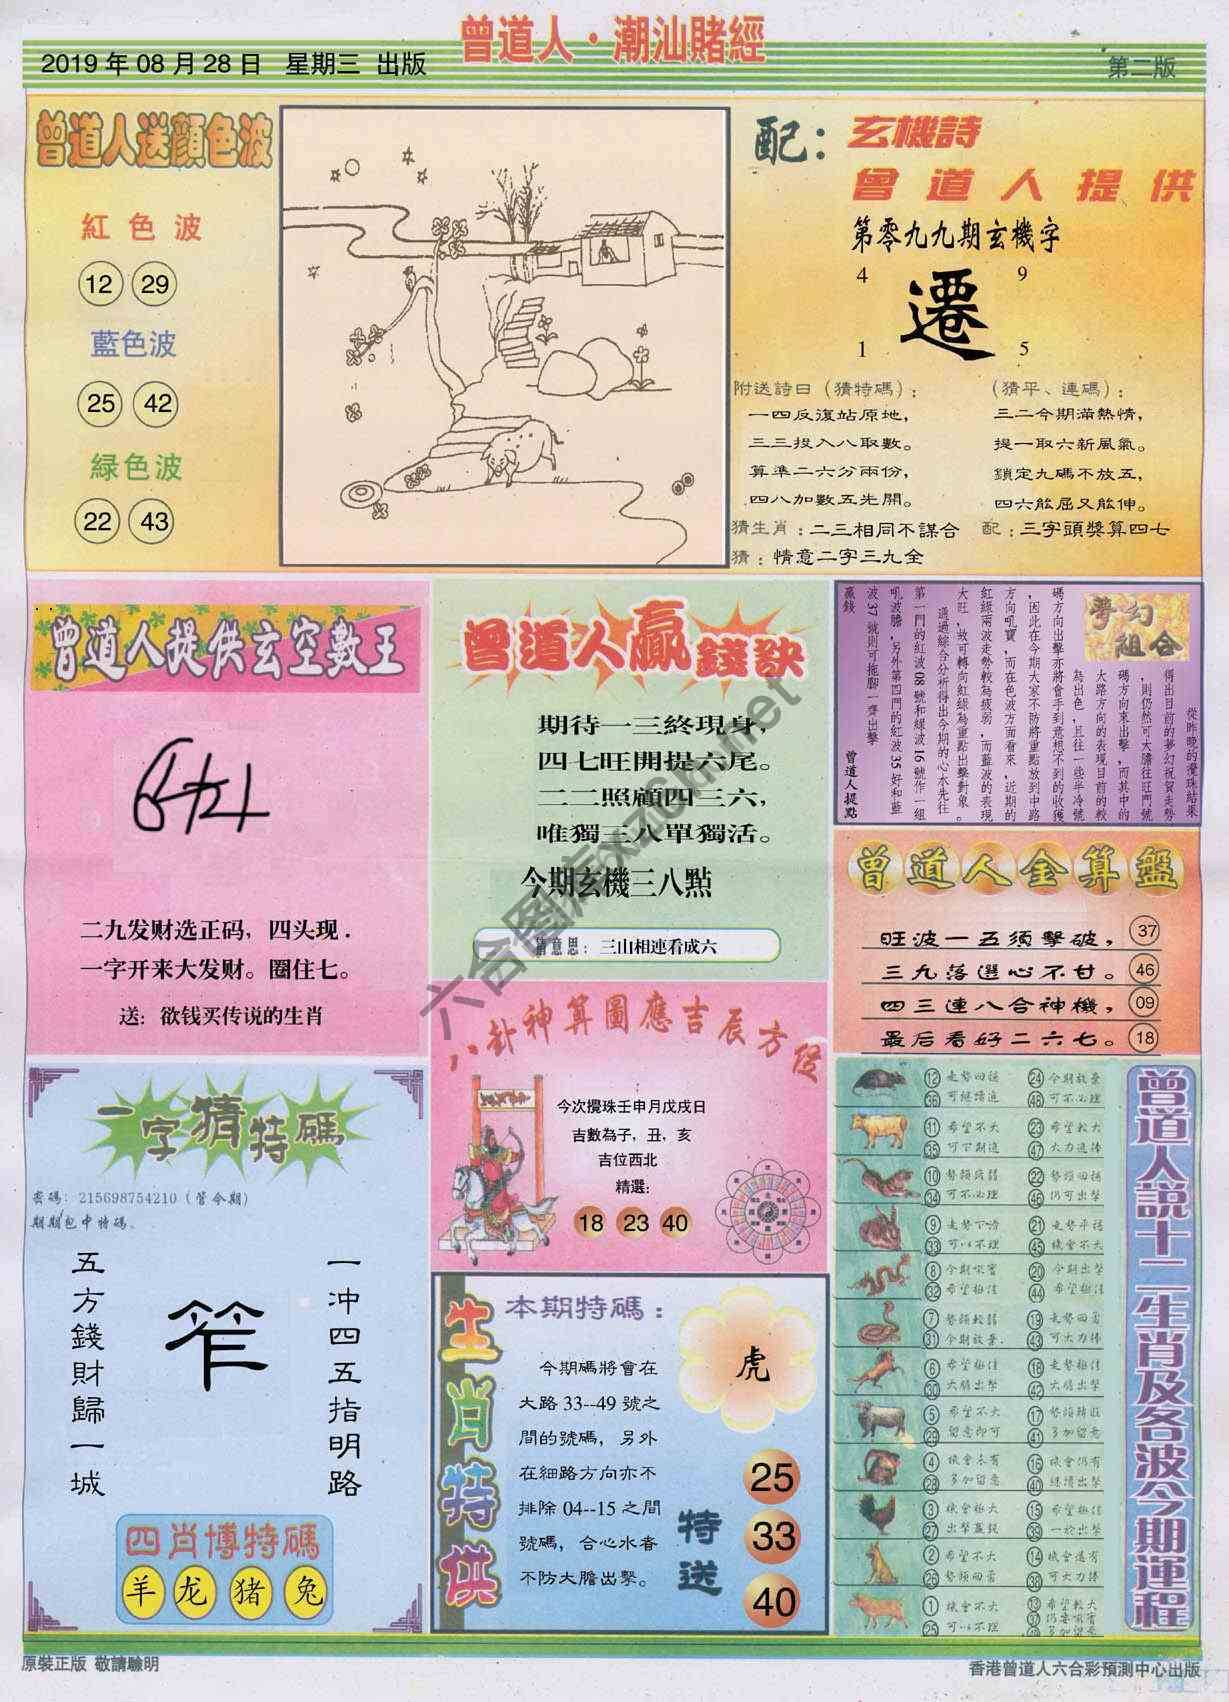 曾道人·潮汕賭經
2019年08月28日 星期三 出版
第二版
曾道人送顔色波
紅色波
12 29
藍色波
25 42
緑色波
22 43
配：玄機詩
曾道人提供
第零九九期玄機字
4 9
遷
1 5
附送詩曰（猜特碼）：
一四反復站原地，
三三投入八取數。
算準二六分兩份，
四八加數五先開。
（猜平、連碼）：
三二今期滿熱情，
提一取六新風氣。
鎖定九碼不放五，
四六能屈又能伸。
猜生肖：二三相同不謀合
配：三字頭獎算四七
猜：情意二字三九全
曾道人提供玄空數王
二九发财选正码，四头现.
一字开来大发财。圈住七。
送：欲钱买传说的生肖
曾道人贏錢訣
期待一三終現身，
四七旺開提六尾。
二二照顧四三六，
唯獨三八單獨活。
今期玄機三八點
猜意思：三山相連看成六
夢幻組合
從昨晚的攪珠結果
得出目前的夢幻祝賀走勢
，則仍然可大膽往旺門號
碼方向來出擊，而其中的
大路方向的表現目前的較
為出色，且往一些半冷號
碼方向出擊亦將會手到意想不到的收獲
，因此在今期大家不防將重點放到中路
方向吼寶，而在色波方面看來，近期的
紅綠兩波走勢較為疲弱，而藍波的表現
大旺，故可轉向紅綠為重點出擊對象。
通過綜合分析得出今期的心水先往
第一門的紅波08號和綠波16號作一組
吼波膽，另外第四門的紅波35好和藍
波37號則可拖腳一齊出擊
贏錢
曾道人提點
曾道人金算盤
旺波一五須擊破， 37
三九落選心不甘。 46
四三連八合神機， 09
最后看好二六七。 18
八卦神算圖應吉辰方位
今次攪珠壬申月戊戌日
吉數為子，丑，亥
吉位西北
精選：
18 23 40
一字猜特碼
密碼：215698754210（管今期）
期期包中特碼。
一冲四五指明路
笮
五方錢財歸一城
四肖博特碼
羊 龙 猪 兔
生肖特供
本期特碼：
虎
今期碼將會在
大路33--49號之
間的號碼，另外
在細路方向亦不
排除04--15之間
號碼，合心水者
不防大膽出擊。
特送
25
33
40
曾道人説十二生肖及各波今期運程
12 36 走勢回穩 可繼續追
24 48 今期放棄 可不必理
11 35 希望不大 可下期追
23 47 希望較大 大力追捧
10 34 勢頭疲弱 可不必理
22 46 勢頭回穩 仍可出擊
9 33 走勢下滑 可以不理
21 45 走勢平穩 機會不大
8 32 今期吼寶 希望極佳
20 44 今期出擊 希望極佳
7 31 勢頭較弱 今期放棄.
19 43 走勢回勇 可大力捧
6 30 希望極佳 大膽出擊
18 42 走勢極佳 大膽出擊
5 29 希望不大 留意即可
17 41 勢頭轉旺 多加留意
4 28 機會未有 多加留意
16 40 機會仍有 繼續出擊
3 27 機會極大 出擊贏錢
15 39 希望極佳 一於出擊
2 26 希望不大 勢頭回落
14 38 機會還有 可大力捧
1 25 機會不大 可以不理
13 37 49 希望較大 仍要吼實 多加留意
六合图库xz6h.net
原裝正版 敬請驗明
香港曾道人六合彩預測中心出版